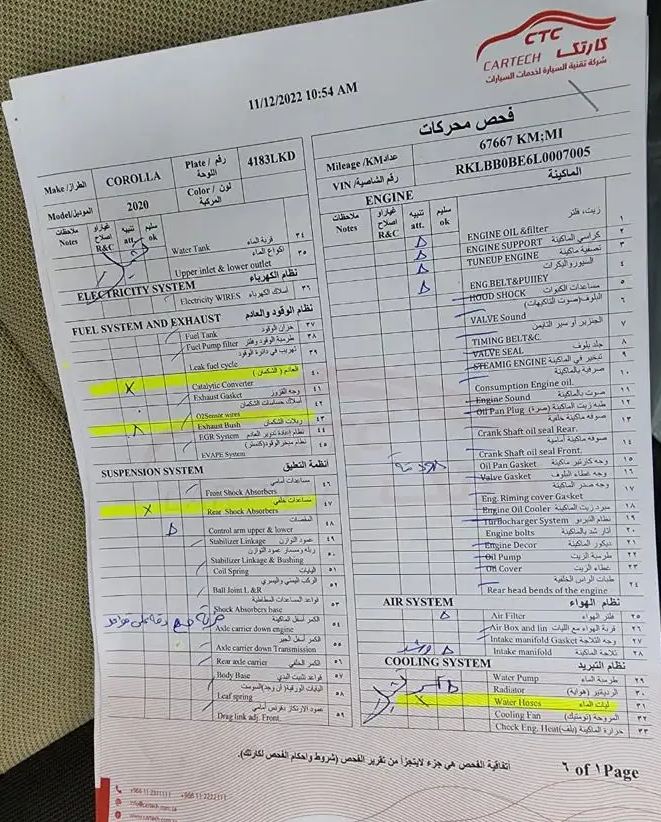 CTC
كارتك
CARTECH
شركة تقنية السيارة لخدمات السيارات
11/12/2022 10:54 AM
فحص محركات
Make/الطراز
COROLLA
Plate / رقم اللوحة
4183LKD
Model/الموديل
2020
Color / لون المركبة
Mileage /KMعداد
67667 KM;MI
VIN /رقم الشاصية
RKLBB0BE6L0007005
ملاحظات Notes
غيار/و اصلاح R&C
تنبيه att.
سليم ok
Water Tank قربة الماء ٣٤
Upper inlet & lower outlet اكواع الماء ٣٥
ELECTRICITY SYSTEM نظام الكهرباء
Electricity WIRES أسلاك الكهرباء ٣٦
FUEL SYSTEM AND EXHAUST نظام الوقود والعادم
Fuel Tank خزان الوقود ٣٧
Fuel Pump filter طرمبة الوقود وفلتر ٣٨
Leak fuel cycle تهريب في دائرة الوقود ٣٩
Catalytic Converter العادم ( الشكمان ) ٤٠
Exhaust Gasket وجه القزوز ٤١
O2Sensor wires أسلاك حساسات الشكمان ٤٢
Exhaust Bush ربلات الشكمان ٤٣
EGR System نظام إعادة تدوير العادم ٤٤
EVAPE System ٤٥
SUSPENSION SYSTEM أنظمة التعليق
Front Shock Absorbers مساعدات أمامي ٤٦
Rear Shock Absorbers مساعدات خلفي ٤٧
Control arm upper & lower المقصات ٤٨
Stabilizer Linkage عمود التوازن ٤٩
Stabilizer Linkage & Bushing ربله ومسمار عمود التوازن ٥٠
Coil Spring اليايات ٥١
Ball Joint L &R الركب اليمني واليسري ٥٢
Shock Absorbers base قواعد المساعدات المطاطية ٥٣
Axle carrier down engine الكمر أسفل الماكينة ٥٤
Axle carrier down Transmission الكمر أسفل الجير ٥٥
Rear axle carrier الكمر الخلفي ٥٦
Body Base قواعد تثبيت البدي ٥٧
Leaf spring ٥٨
Drag link adj. Front عمود الارتكاز بقرنص أمامي ٥٩
ENGINE الماكينة
ملاحظات Notes
غيار/و اصلاح R&C
تنبيه att.
سليم ok
ENGINE OIL &filter زيت، فلتر ١
ENGINE SUPPORT كراسي الماكينة ٢
TUNEUP ENGINE تصفية ماكينة ٣
ENG.BELT&PUIIEY السيور والبكرات ٤
HOUD SHOCK مساعدات الكبوت ٥
VALVE Sound البلوف(صوت التاكيهات) ٦
TIMING BELT&C. الجنزير او سير التايمن ٧
VALVE SEAL جلد بلوف ٨
STEAMIG ENGINE تبخير في الماكينة ٩
Consumption Engine oil. صرفية بالماكينة ١٠
Engine Sound صوت بالماكينة ١١
Oil Pan Plug طبه زيت الماكينة (صرة) ١٢
Crank Shaft oil seal Rear. صوفه ماكينة خلفية ١٣
Crank Shaft oil seal Front. صوفه ماكينة أمامية ١٤
Oil Pan Gasket وجه كارتير ماكينة ١٥
Valve Gasket وجه غطاء البلوف ١٦
Eng. Riming cover Gasket وجه صدر الماكينة ١٧
Engine Oil Cooler مبرد زيت الماكينة ١٨
Turbocharger System نظام التيربو ١٩
Engine bolts آثار شد بالماكينة ٢٠
Engine Decor ديكور الماكينة ٢١
Oil Pump طرمبة الزيت ٢٢
Oil Cover غطاء الزيت ٢٣
Rear head bends of the engine طبات الراس الخلفية ٢٤
AIR SYSTEM نظام الهواء
Air Filter فلتر الهواء ٢٥
Air Box and lin قربة الهواء مع الليات ٢٦
Intake manifold Gasket وجه الثلاجة ٢٧
Intake manifold ثلاجة الماكينة ٢٨
COOLING SYSTEM نظام التبريد
Water Pump طرمبة الماء ٢٩
Radiator الرديتير (هواية) ٣٠
Water Hoses ليات الماء ٣١
Cooling Fan المروحة (توميتك) ٣٢
Check Eng. Heat حرارة الماكينة (بلف) ٣٣
اتفاقية الفحص هي جزء لايتجزأ من تقرير الفحص (شروط واحكام الفحص لكارتك).
٦ of ١ Page
+966 11 2311111 +966 11-2222111
info@cartech.com.sa
www.cartech.com.sa